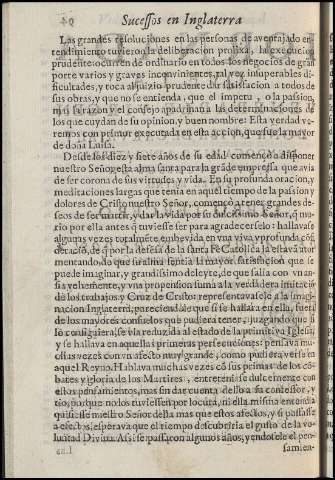 Sucessos en Inglaterra
Las grandes resoluciones en las personas de aventajado en-
tendimiento tuvieron la deliberacion prolixa, la execucion
prudente: ocurren de ordinario en todos los negocios de gran
porte varios y graves inconvinientes, tal vez insuperables di-
ficultades, y toca al juizio prudente dar satisfacion a todos
sus obras, y que no se entienda, que el impetu, o la passion,
mas la razon y el consejo apadrinan las determinaciones de
los que cuydan de su opinion, y buen nombre: Esta verdad ve-
remos con primor executada en esta accion, que fue la mayor
de doña Luisa.
Desde los diez y siete años de su edad començò a disponer
nuestro Señor esta alma santa para la grãde empressa que avia
de ser corona de sus virtudes, y vida. En su profunda oracion, y
meditaciones largas que tenia en aquel tiempo de la passion y
dolores de Cristo nuestro Señor, començò a tener grandes de-
seos de ser martir, y dar la vida por su dulcissimo Señor, q̃ mu-
rio por ella antes q̃ tuviesse ser para agradecerselo: hallavase
algunas vezes totalmẽte embevida en una viva y profunda cõsi-
deraciõ, de q̃ por la defensa de la santa Fe Catolica la estavã ator
mentando, de que su alma sentia la mayor satisfacion que se
puede imaginar, y grandissimo deleyte, de que salia con un an-
sia vehemente, y una propension suma a la verdadera imitaciõ
de los trabajos y Cruz de Cristo: representavasele a la imagi-
nacion Inglaterra, pareciendole que si se hallara en ella, fuera
de los mayores consuelos que pudiera tener, juzgando que si
lo consiguiera, se via reduzida al estado de la primitiva Iglesia,
y se hallava en aquellas primeras persecuciones: pensava mu-
chas vezes con un afecto muy grande, como pudiera verse en
aquel Reyno. Hablava muchas vezes cõ sus primas de los cõ-
bates y gloria de los Martires, entreteniase dulcemente con
estos pensamientos, mas sin dar cuenta dello a su confessor, y
tio, porque no los tuviessen por locura, ni ella misma entendia
quisiesse nuestro Señor della mas que estos afectos, y si passasse
a efectos, esperava que el tiempo descubriria el gusto de la vo-
luntad Divina. Assi se passaron algunos años, yendosele el pen-
samien-